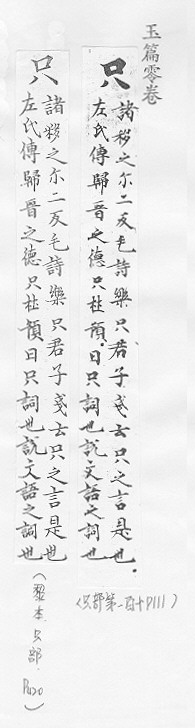 玉篇零卷
只
諸移之尒二反毛詩樂只君子戔云只之言是也
左氏傳歸晉之德只杜預曰只詞也說文語之詞也
(只部第一百十P111)
只
諸移之尒二反毛詩樂只君子戔云只之言是也
左氏傳歸晉之德只杜預曰只詞也說文語之詞也
(黎本.只部.P220)